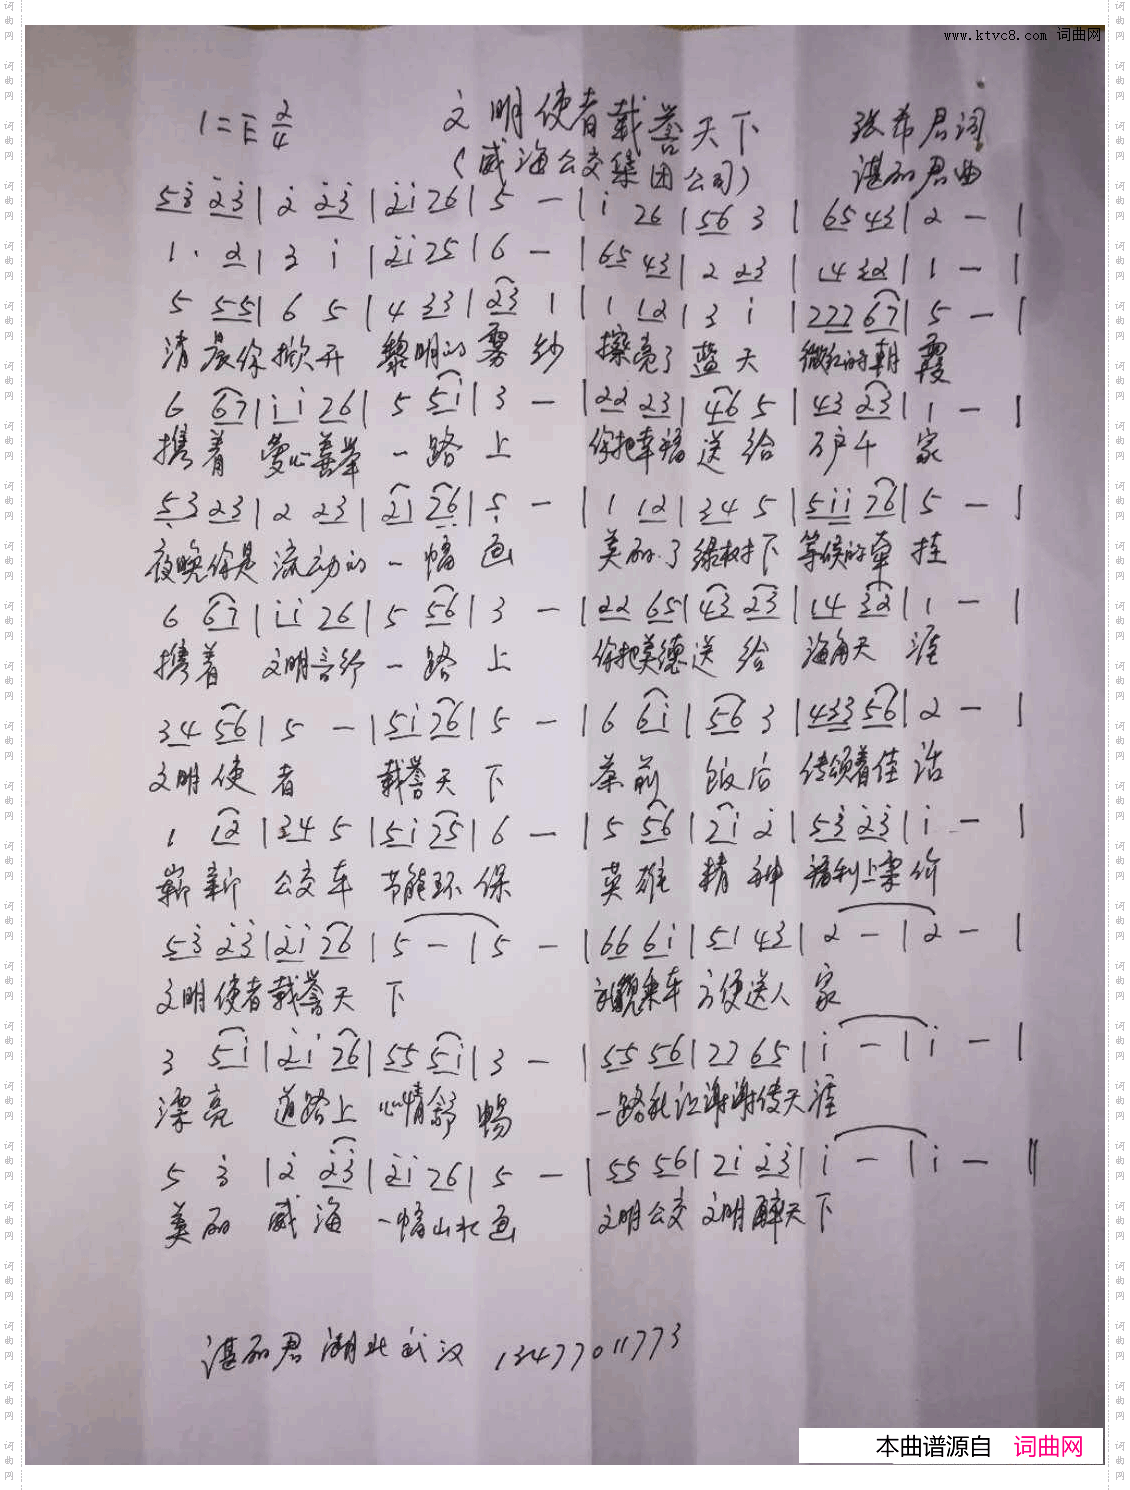 www.ktvc8.com 词曲网
1=E 2/4 文明使者载誉天下 张希君词
(威海公交集团公司) 谌丽君曲
5̲3̲̇ 2̲̇3̲̇ | 2̇ 2̲̇3̲̇ | 2̲̇i̲ 2̲6̲ | 5 - | i 2̲6̲ | 5̲6̲ 3 | 6̲5̲ 4̲3̲ | 2 - |
1· 2̲ | 3 i | 2̲̇i̲ 2̲5̲ | 6 - | 6̲5̲ 4̲3̲ | 2 2̲3̲ | 1̲4̲ 3̲2̲ | 1 - |
5 5̲5̲ | 6 5 | 4 3̲3̲ | 2̲3̲ 1 | 1 1̲2̲ | 3 i | 2̲2̲2̲ 6̲7̲ | 5 - |
清晨你掀开 黎明的雾纱 擦亮了蓝天 微红的朝霞
6 6̲7̲ | i̲ i̲ 2̲6̲ | 5 5̲i̲ | 3 - | 2̲2̲ 2̲3̲ | 4̲6̲ 5 | 4̲3̲ 2̲3̲ | 1 - |
携着 爱心善举 一路上 你把幸福送给 万户千家
5̲3̲ 2̲3̲ | 2 2̲3̲ | 2̲1̲ 7̲6̲ | 5 - | 1 1̲2̲ | 3̲4̲ 5 | 5̲i̲i̲ 7̲6̲ | 5 - |
夜晚你是流动的一幅画 美丽了绿树下 等候的牵挂
6 6̲7̲ | i̲i̲ 2̲6̲ | 5 5̲6̲ | 3 - | 2̲2̲ 6̲5̲ | 4̲3̲ 2̲3̲ | 1̲4̲ 3̲2̲ | 1 - |
携着 文明言行 一路上 你把美德送给 海角天涯
3̲4̲ 5̲6̲ | 5 - | 5̲i̲ 7̲6̲ | 5 - | 6 6̲i̲ | 5̲6̲ 3 | 4̲3̲3̲ 5̲6̲ | 2 - |
文明使者 载誉天下 茶前 饭后 传颂着佳话
1 1̲2̲ | 3̲4̲ 5 | 5̲i̲ 7̲5̲ | 6 - | 5 5̲6̲ | 7̲i̲ 2̇ | 5̲3̲̇ 2̲̇3̲̇ | i - |
崭新 公交车 节能环保 英雄 精神
5̲3̲̇ 2̲̇3̲̇ | 2̲̇i̲ 7̲6̲ | 5 - | 5 - | 6̲6̲ 6̲i̲ | 5̲1̲ 4̲3̲ | 2 - | 2 - |
文明使者载誉天下 乘车 方便送人家
3 5̲i̲ | 2̲̇i̲ 7̲6̲ | 5̲5̲ 5̲i̲ | 3 - | 5̲5̲ 5̲6̲ | 7̲7̲ 6̲5̲ | i - | i - |
漂亮 道路上 心情舒畅 一路 谢谢传天涯
5 3̇ | 2̇ 2̲̇3̲̇ | 2̲̇i̲ 2̲6̲ | 5 - | 5̲5̲ 5̲6̲ | 7̲i̲ 2̲̇3̲̇ | i - | i - ‖
美丽 威海 一幅山水画 文明公交 文明醉天下
谌丽君 湖北武汉 13477011773
本曲谱源自 词曲网